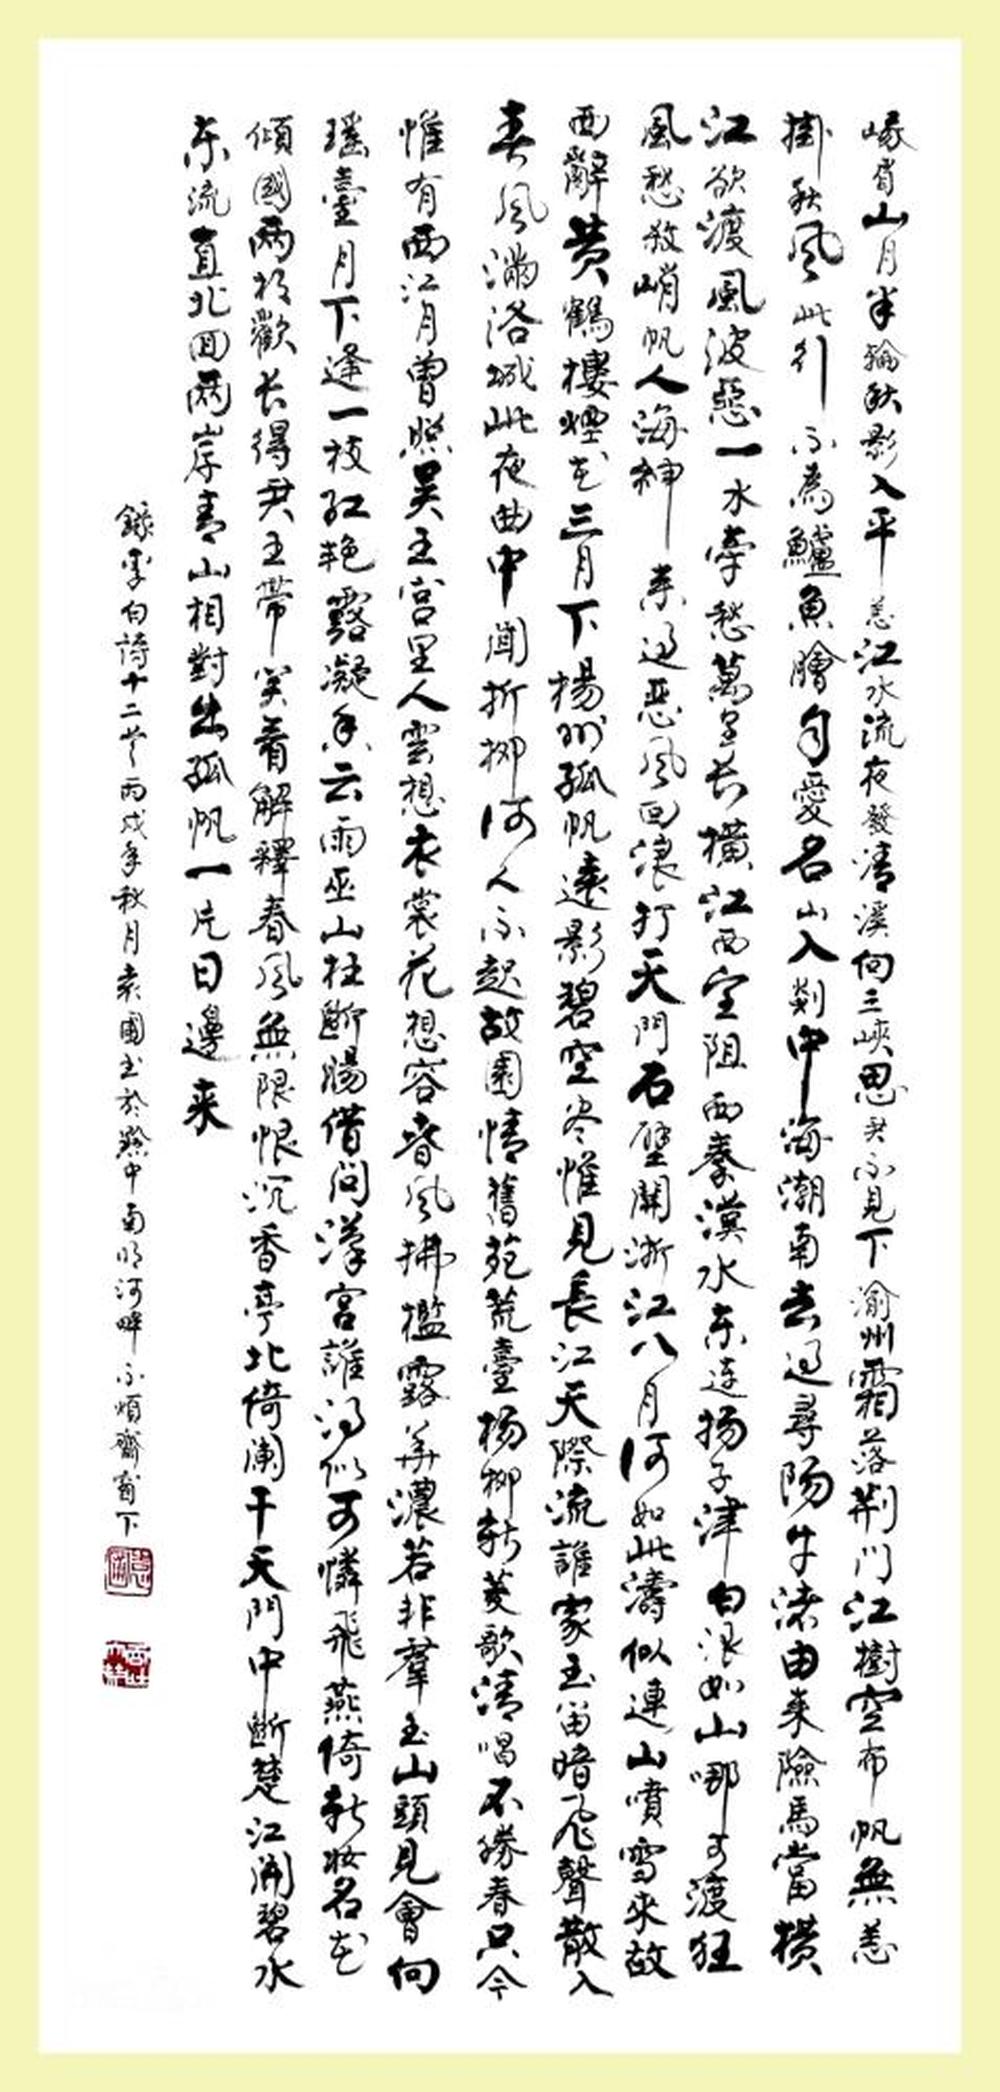 峨眉山月半輪秋影入平羌江水流夜發清溪向三峽思君不見下渝州霜落荆门江樹空布帆無恙
掛秋風此行不為鱸魚膾自愛名山入剡中海潮南去過尋陽牛渚由来險馬當横
江欲渡風波惡一水牽愁萬里长橫江西望阻西秦漢水东连扬子津白浪如山哪可渡狂
風愁殺峭帆人海神来過惡風回浪打天門石壁開浙江八月何如此濤似連山噴雪來故
西辭黄鶴樓煙花三月下揚州孤帆遠影碧空尽惟見長江天際流誰家玉笛暗飛聲散入
春風满洛城此夜曲中聞折柳何人不起故園情舊苑荒臺杨柳新菱歌清唱不勝春只今
惟有西江月曾照吴王宫里人雲想衣裳花想容春風拂檻露華濃若非羣玉山頭見會向
瑶臺月下逢一枝红艳露凝香云雨巫山枉斷腸借问漢宫誰得似可憐飛燕倚新妆名花
倾國两相歡长得君王带笑看解釋春風無限恨沉香亭北倚闌干天門中断楚江開碧水
东流直北回两岸青山相對出孤帆一片日邊来
錄李白詩十二首丙戌年秋月袁國书於黔中南明河畔不煩齋窗下